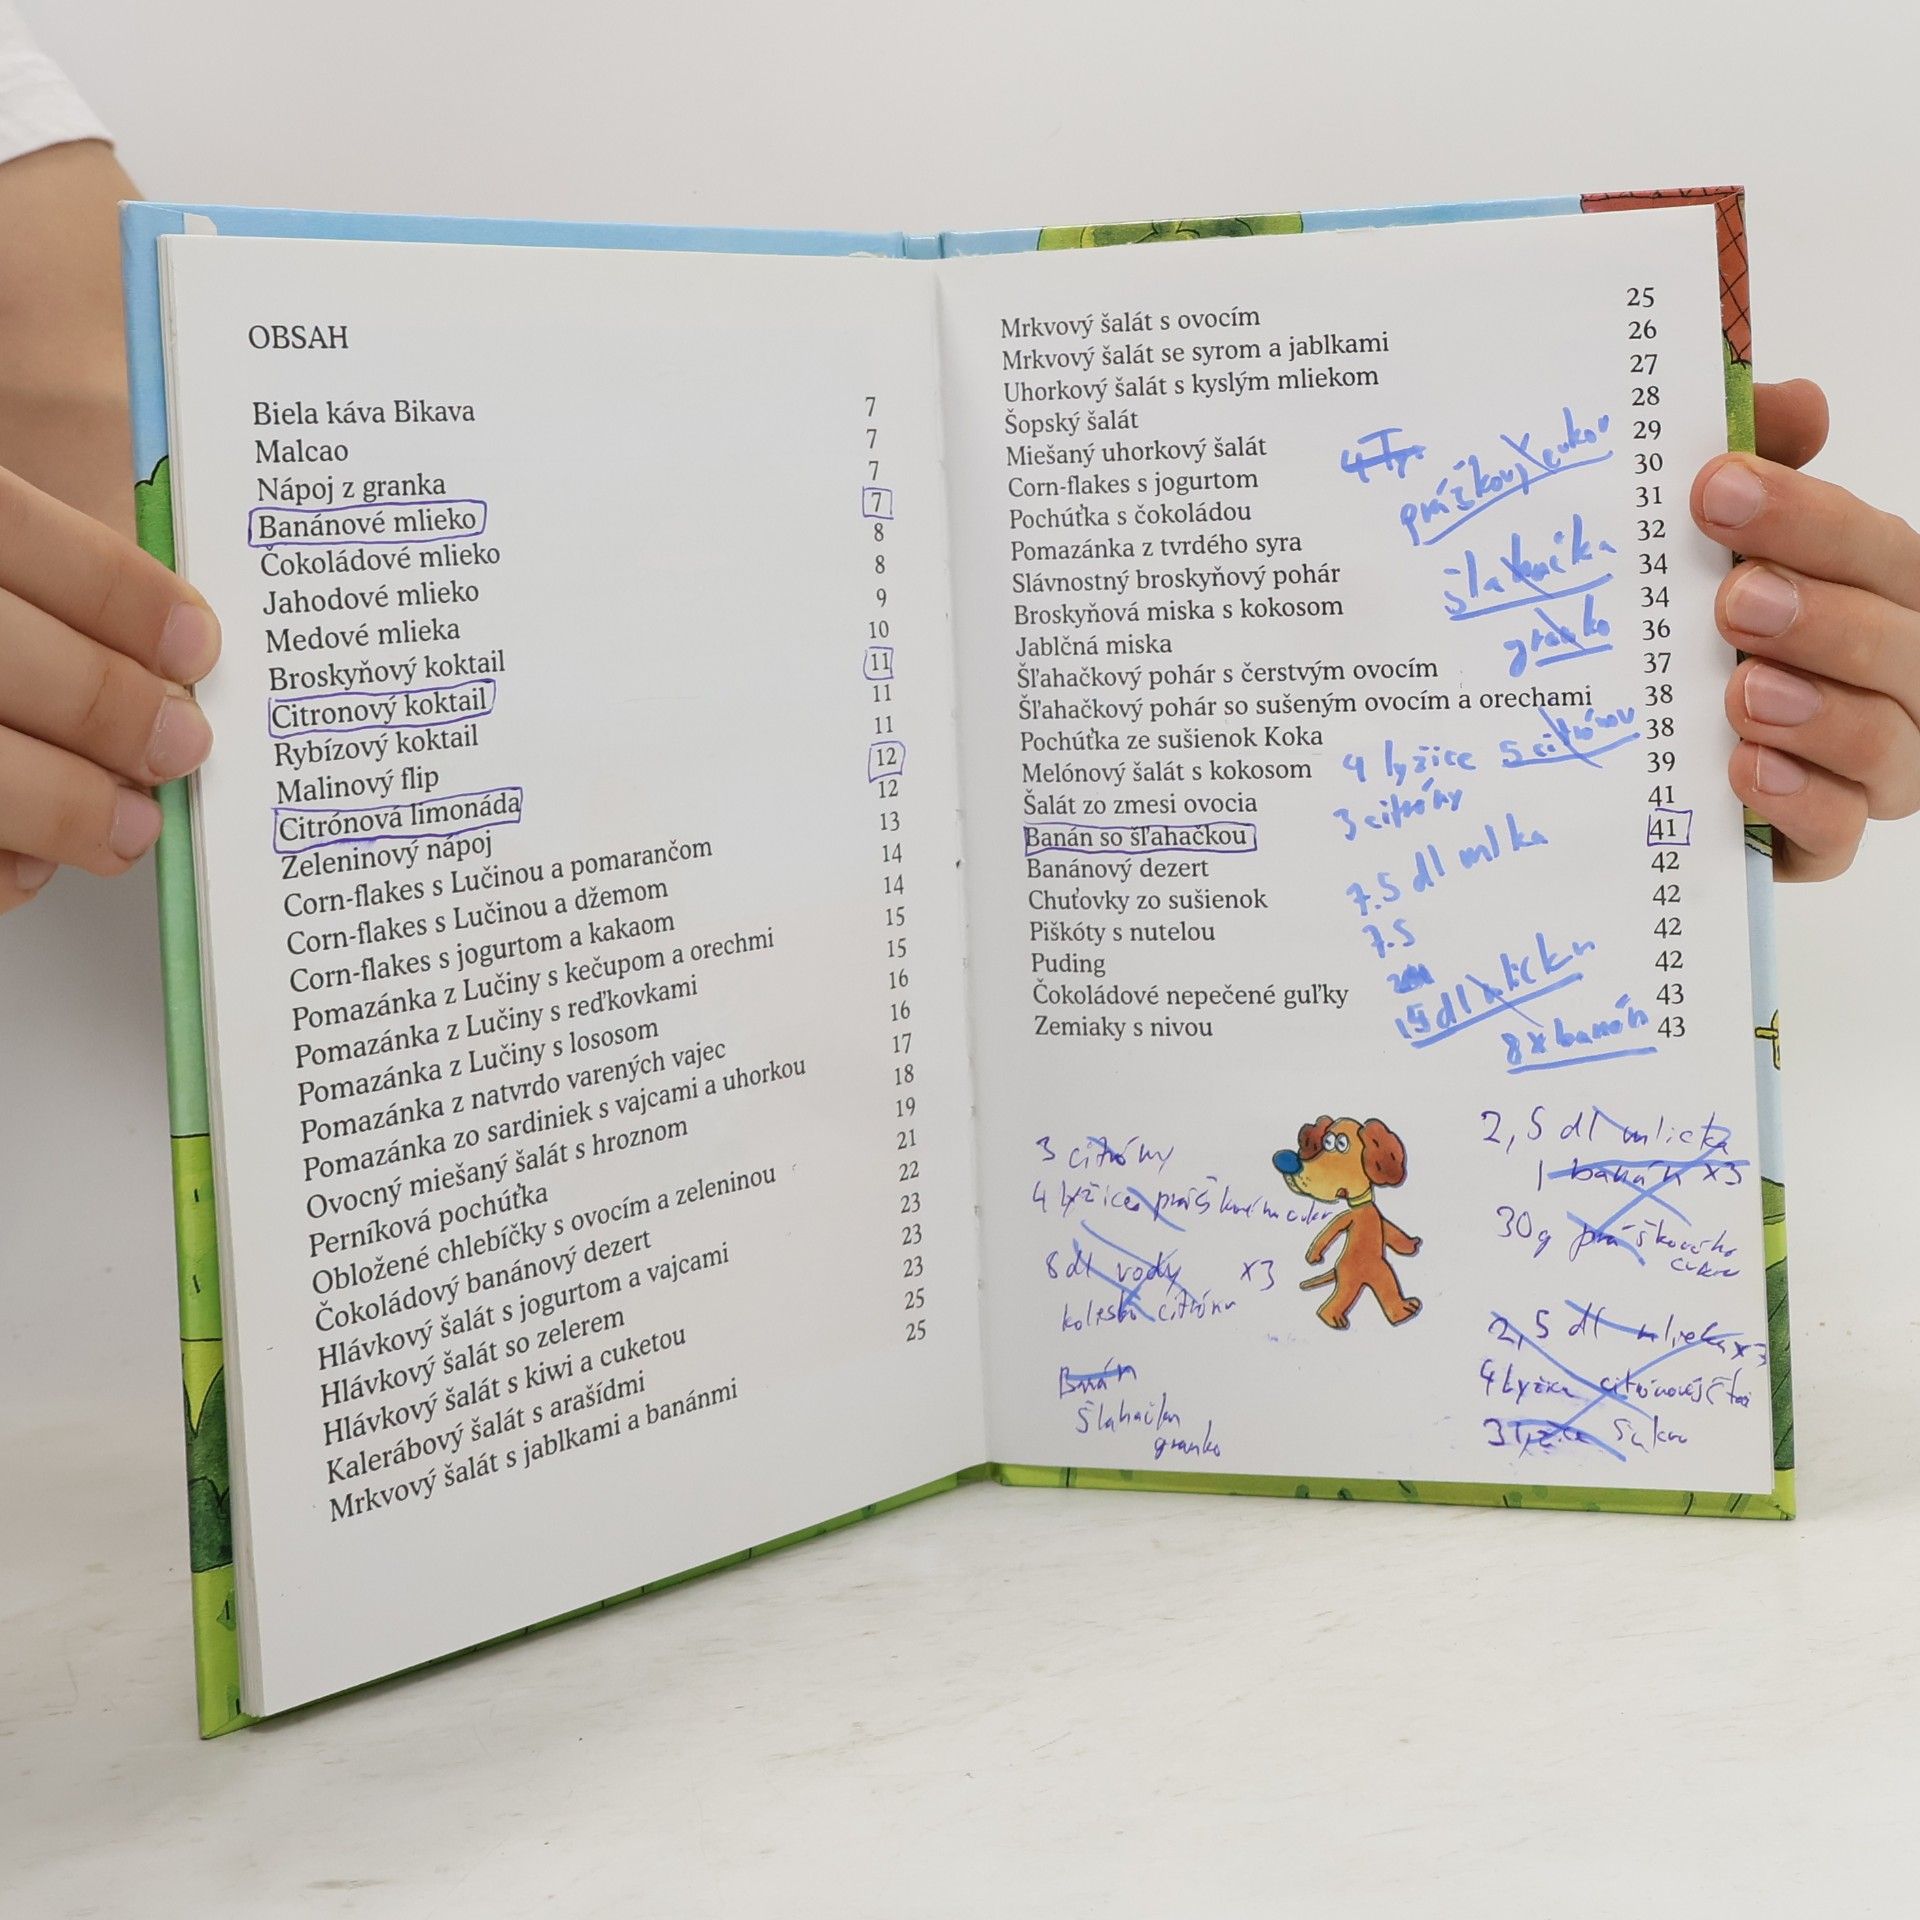 OBSAH
Biela káva Bikava 7
Malcao 7
Nápoj z granka 7
Banánové mlieko 7
Čokoládové mlieko 8
Jahodové mlieko 8
Medové mlieka 9
Broskyňový koktail 10
Citronový koktail 11
Rybízový koktail 11
Malinový flip 11
Citrónová limonáda 12
Zeleninový nápoj 12
Corn-flakes s Lučinou a pomarančom 13
Corn-flakes s Lučinou a džemom 14
Corn-flakes s jogurtom a kakaom 14
Pomazánka z Lučiny s kečupom a orechmi 15
Pomazánka z Lučiny s reďkovkami 15
Pomazánka z Lučiny s lososom 16
Pomazánka z natvrdo varených vajec 16
Pomazánka zo sardiniek s vajcami a uhorkou 17
Ovocný miešaný šalát s hroznom 18
Perníková pochúťka 19
Obložené chlebíčky s ovocím a zeleninou 21
Čokoládový banánový dezert 22
Hlávkový šalát s jogurtom a vajcami 23
Hlávkový šalát so zelerem 23
Hlávkový šalát s kiwi a cuketou 23
Kalerábový šalát s arašídmi 25
Mrkvový šalát s jablkami a banánmi 25
Mrkvový šalát s ovocím 25
Mrkvový šalát se syrom a jablkami 26
Uhorkový šalát s kyslým mliekom 27
Šopský šalát 28
Miešaný uhorkový šalát 29
Corn-flakes s jogurtom 30
Pochúťka s čokoládou 31
Pomazánka z tvrdého syra 32
Slávnostný broskyňový pohár 34
Broskyňová miska s kokosom 34
Jablčná miska 36
Šľahačkový pohár s čerstvým ovocím 37
Šľahačkový pohár so sušeným ovocím a orechami 38
Pochúťka ze sušienok Koka 38
Melónový šalát s kokosom 39
Šalát zo zmesi ovocia 41
Banán so šľahačkou 41
Banánový dezert 42
Chuťovky zo sušienok 42
Piškóty s nutelou 42
Puding 42
Čokoládové nepečené guľky 43
Zemiaky s nivou 43
práškový cukor
granko
4 lyžice 5 citrónov
3 citróny
7.5 dl mlka
7.5
8 x banán
3 citróny
4 lyžice
8 dl vody x3
citrónu
Banán
granko
2,5 dl mlieka
1 banán x3
30g práškového
cukru
2,5 dl mlieka x3
4 lyžice citrónovej
3